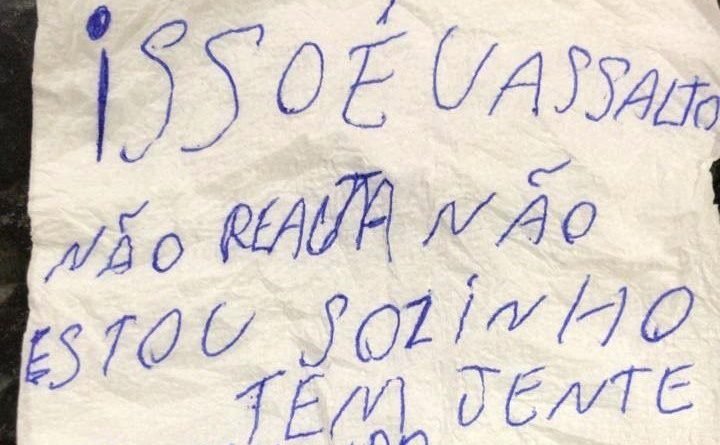 iSSO É U ASSALTO
NÃO REAGTA NÃO
ESTOU SOZINHO
TEM JENTE